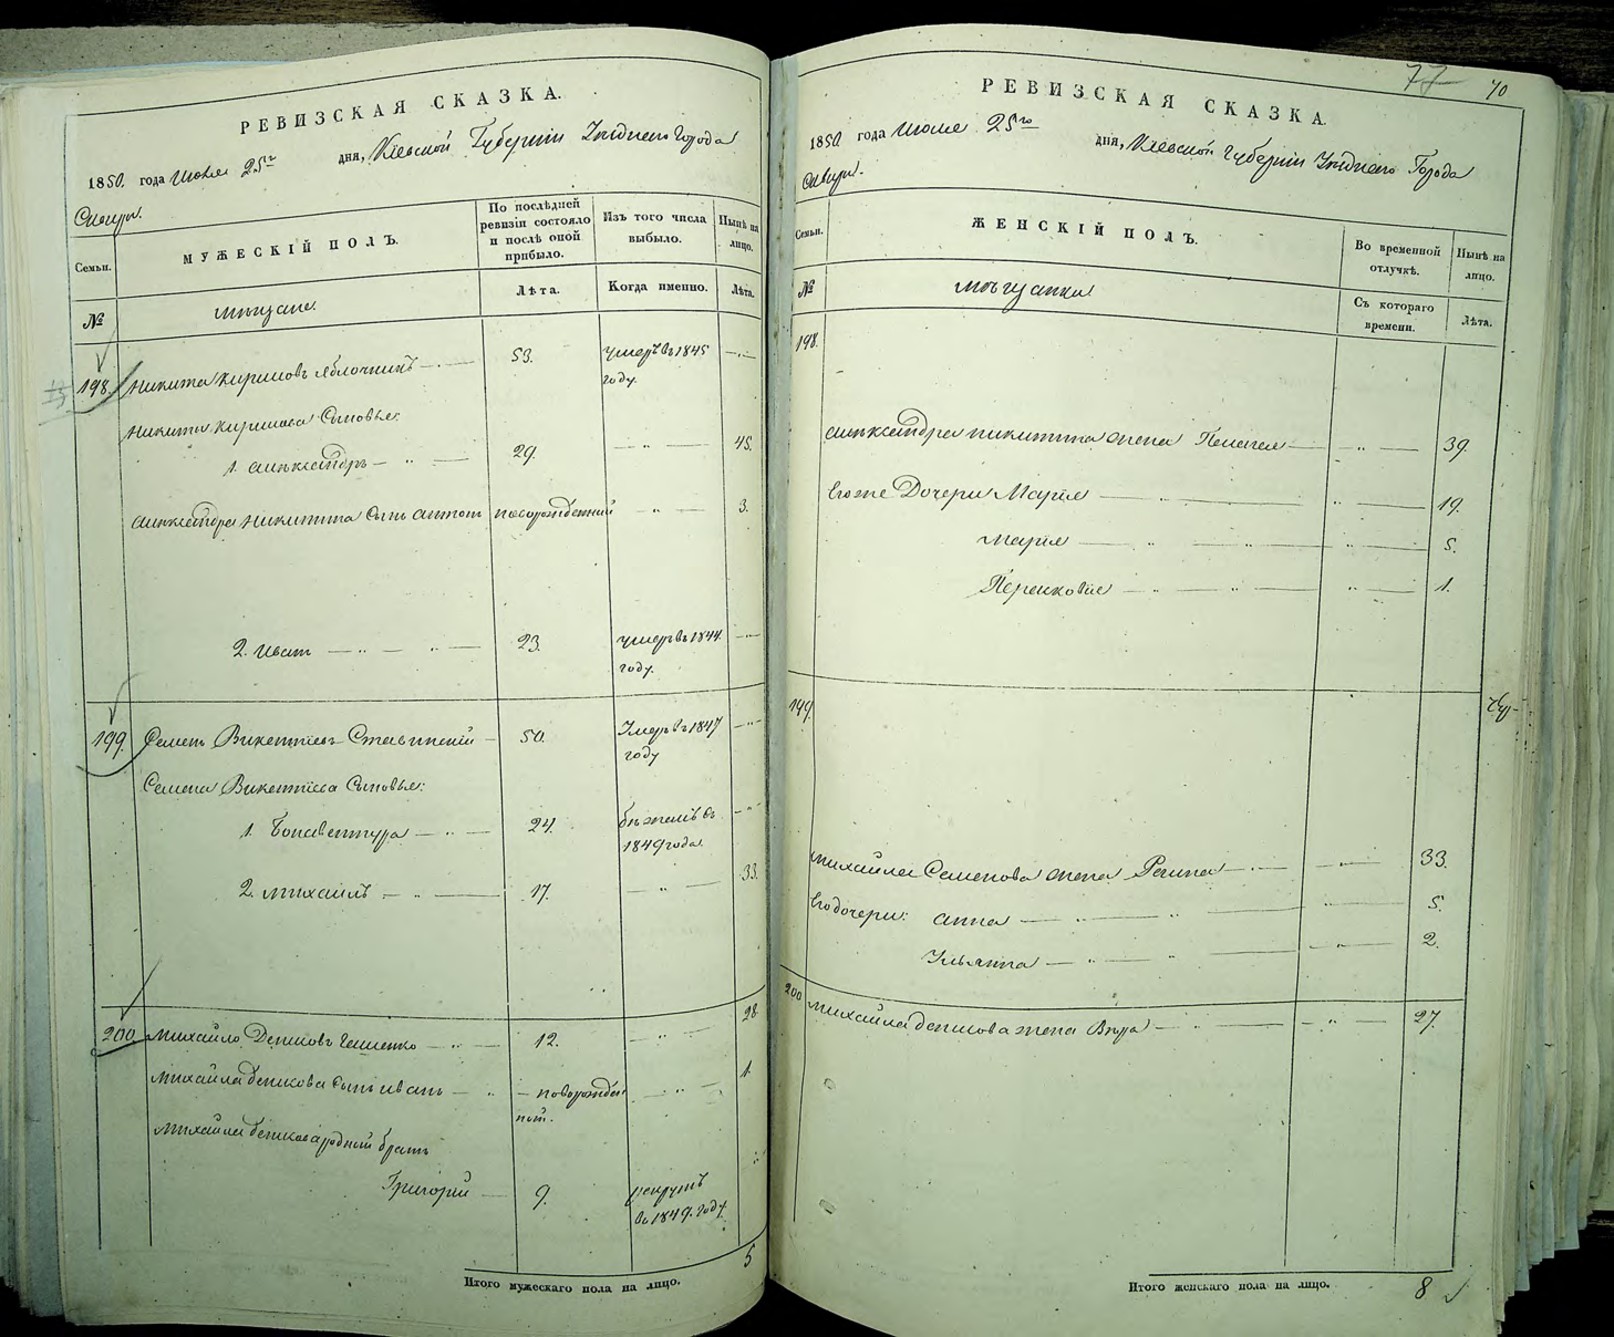 РЕВИЗСКАЯ СКАЗКА.
1850. года Июля 25го дня, Кіевской Губерніи Уѣзднаго Города
Сквиры.
Семьи.
МУЖЕСКІЙ ПОЛЪ.
По послѣдней ревизіи состояло и послѣ оной прибыло.
Изъ того числа выбыло.
Нынѣ на лицо.
№
Мѣщане.
Лѣта.
Когда именно.
Лѣта.
198. Никита Кириловъ Яблочникъ 53. умеръ въ 1845
году.
Никиты Кирилова Сыновья:
1. Алѣксандръ 29. 45.
Алѣксандра Никитина сынъ Антонъ новорожденный 3.
2. Иванъ 23. умеръ въ 1844.
году.
199. Семенъ Викентіевъ Ставинскій 50. Умеръ въ 1847
году
Семена Викентіева Сыновья:
1. Бонавентура 24. бѣжалъ въ
1849 года
2. Михаилъ 17. 33.
200 Михайло Денисовъ 12. 28.
Михайла Денисова сынъ Иванъ новорожден 1.
ной.
Михайла Денисова родный братъ
Григорій 9. рекрутъ
въ 1849. году.
Итого мужескаго пола на лицо. 5
77 70
РЕВИЗСКАЯ СКАЗКА.
1850. года Июля 25го дня, Кіевской Губерніи Уѣзднаго Города
Сквиры.
Семьи.
ЖЕНСКІЙ ПОЛЪ.
Во временной отлучкѣ.
Нынѣ на лицо.
№
Мѣщанки
Съ котораго времени.
Лѣта.
198.
Алѣксандра Никитина жена Пелагея 39.
Егоже Дочери Марія 19.
Марія 5.
1.
199.
Михайла Семенова жена Регина 33.
Его дочери: Анна 5.
Ульянна 2.
200 Михайла Денисова жена Вѣра 27.
Итого женскаго пола на лицо. 8